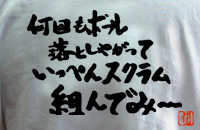 何回もボール
落としやがって
いっぺんスクラム
組んでみ〜